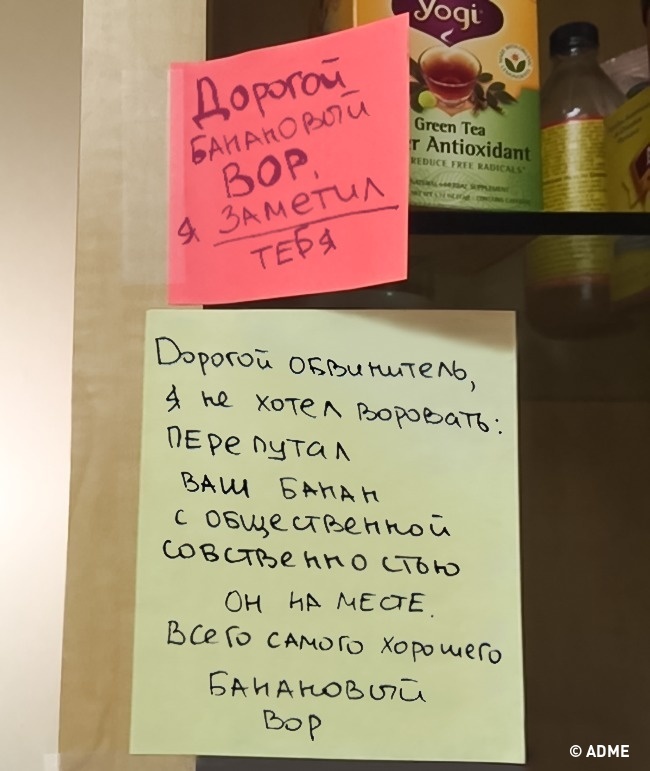 yogi
Green Tea
r Antioxidant
REDUCE FREE RADICALS*
Дорогой
БАНАНОВЫЙ
ВОР,
Я ЗАМЕТИЛ
ТЕБЯ
Дорогой обвинитель,
Я не хотел воровать:
ПЕРЕПУТАЛ
ВАШ БАНАН
с ОБЩЕСТВЕННОЙ
СОБСТВЕННОСТЬЮ
ОН НА МЕСТЕ.
Всего САМОГО хорошего
БАНАНОВЫЙ
ВОР
© ADME